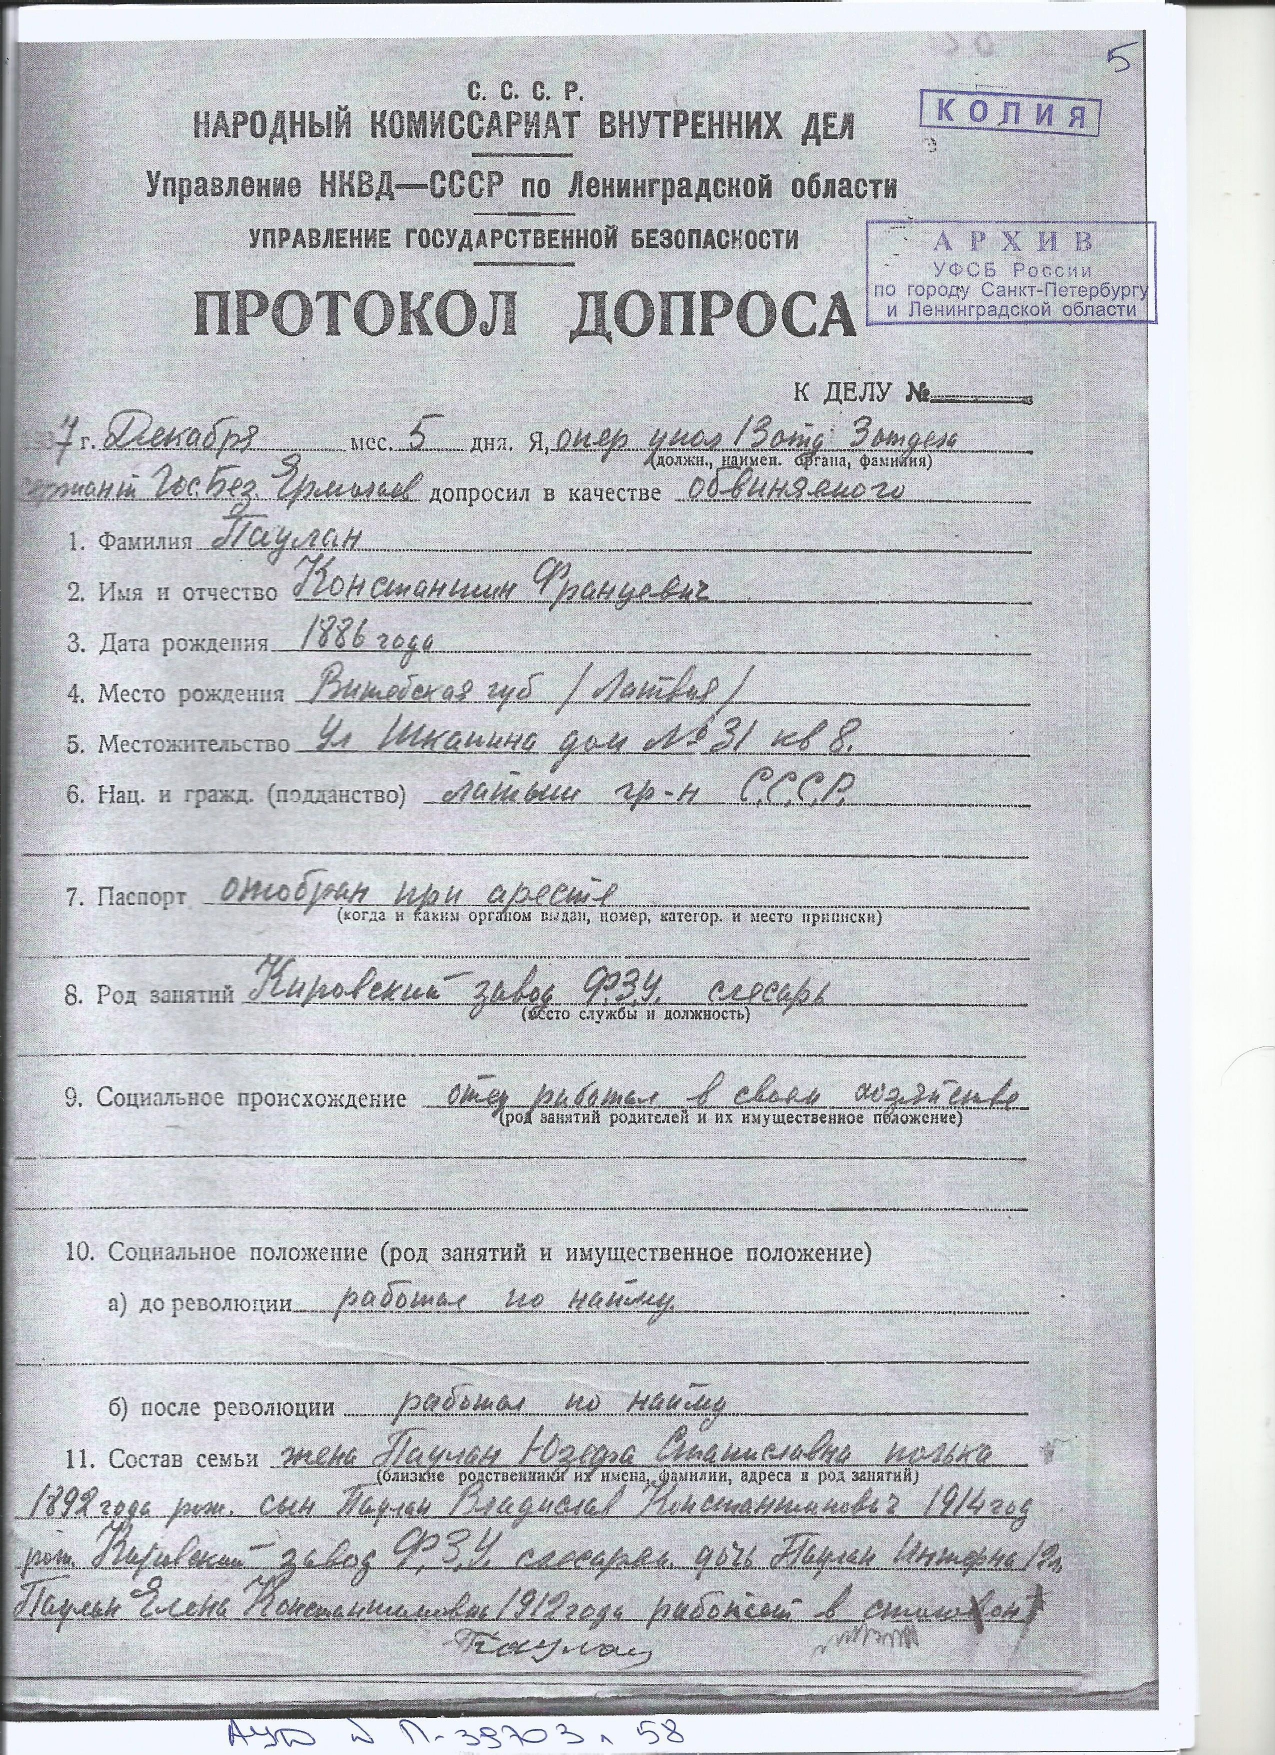 5
С. С. С. Р.
КОПИЯ
НАРОДНЫЙ КОМИССАРИАТ ВНУТРЕННИХ ДЕЛ
Управление НКВД—СССР по Ленинградской области
УПРАВЛЕНИЕ ГОСУДАРСТВЕННОЙ БЕЗОПАСНОСТИ
АРХИВ
УФСБ России
по городу Санкт-Петербургу
и Ленинградской области
ПРОТОКОЛ ДОПРОСА
К ДЕЛУ №
7 г. Декабря мес. 5 дня. Я, опер упол 13 отд. 3 отдела
(должн., наимен. органа, фамилия)
Гос Без. Ермолаев допросил в качестве обвиняемого
1. Фамилия Паулан
2. Имя и отчество Константин Францевич
3. Дата рождения 1886 года
4. Место рождения Витебская губ /Латвия/
5. Местожительство ул Шкапина дом № 31 кв 8.
6. Нац. и гражд. (подданство) латыш гр-н С.С.С.Р.
7. Паспорт отобран при аресте
(когда и каким органом выдан, номер, категор. и место прописки)
8. Род занятий Кировский завод Ф.З.У. слесарь
(место службы и должность)
9. Социальное происхождение отец работал в своем хозяйстве
(род занятий родителей и их имущественное положение)
10. Социальное положение (род занятий и имущественное положение)
а) до революции работал по найму.
б) после революции работал по найму
11. Состав семьи жена Паулан Юзефа Станиславна полька
(близкие родственники их имена, фамилии, адреса и род занятий)
1892 года рож. сын Паулан Владислав Константинович 1914 год
рож. Кировский завод Ф.З.У. слесарем. дочь Паулан
Паулан Елена Константиновна 1912 года работает в
Паулан
П-39703 л 58